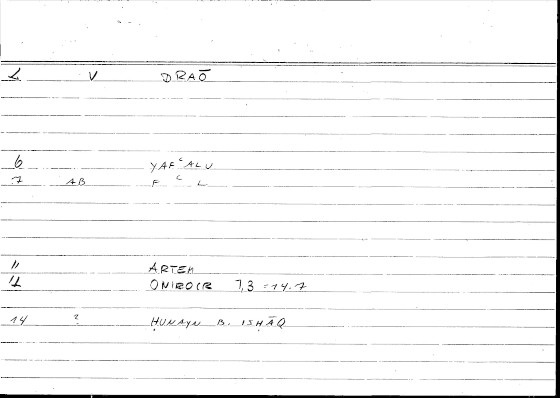 1 V DRAŌ
6 YAFʿALU
7 AB F ʿ L
11 ARTEM
12 ONIROCR 7,3 = 14.7
14 ? ḤUNAYN B. ISḤĀQ